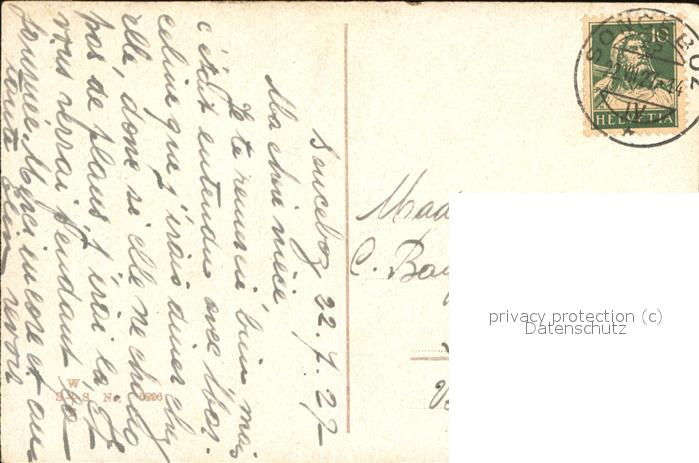 Sonceboz 22.7.27
Ma chère nièce,
Je te remercie bien mais
c'était entendu avec Mar.
céline que j'irais diner chez
elle, donc si elle ne change
pas de plans j'irai là et
vous verrai pendant la
journée. Merci encore et au
revoir
Mad
C. Bay
W
S.i.S No. 6296
10
HELVETIA
SONCEBOZ
privacy protection (c)
Datenschutz